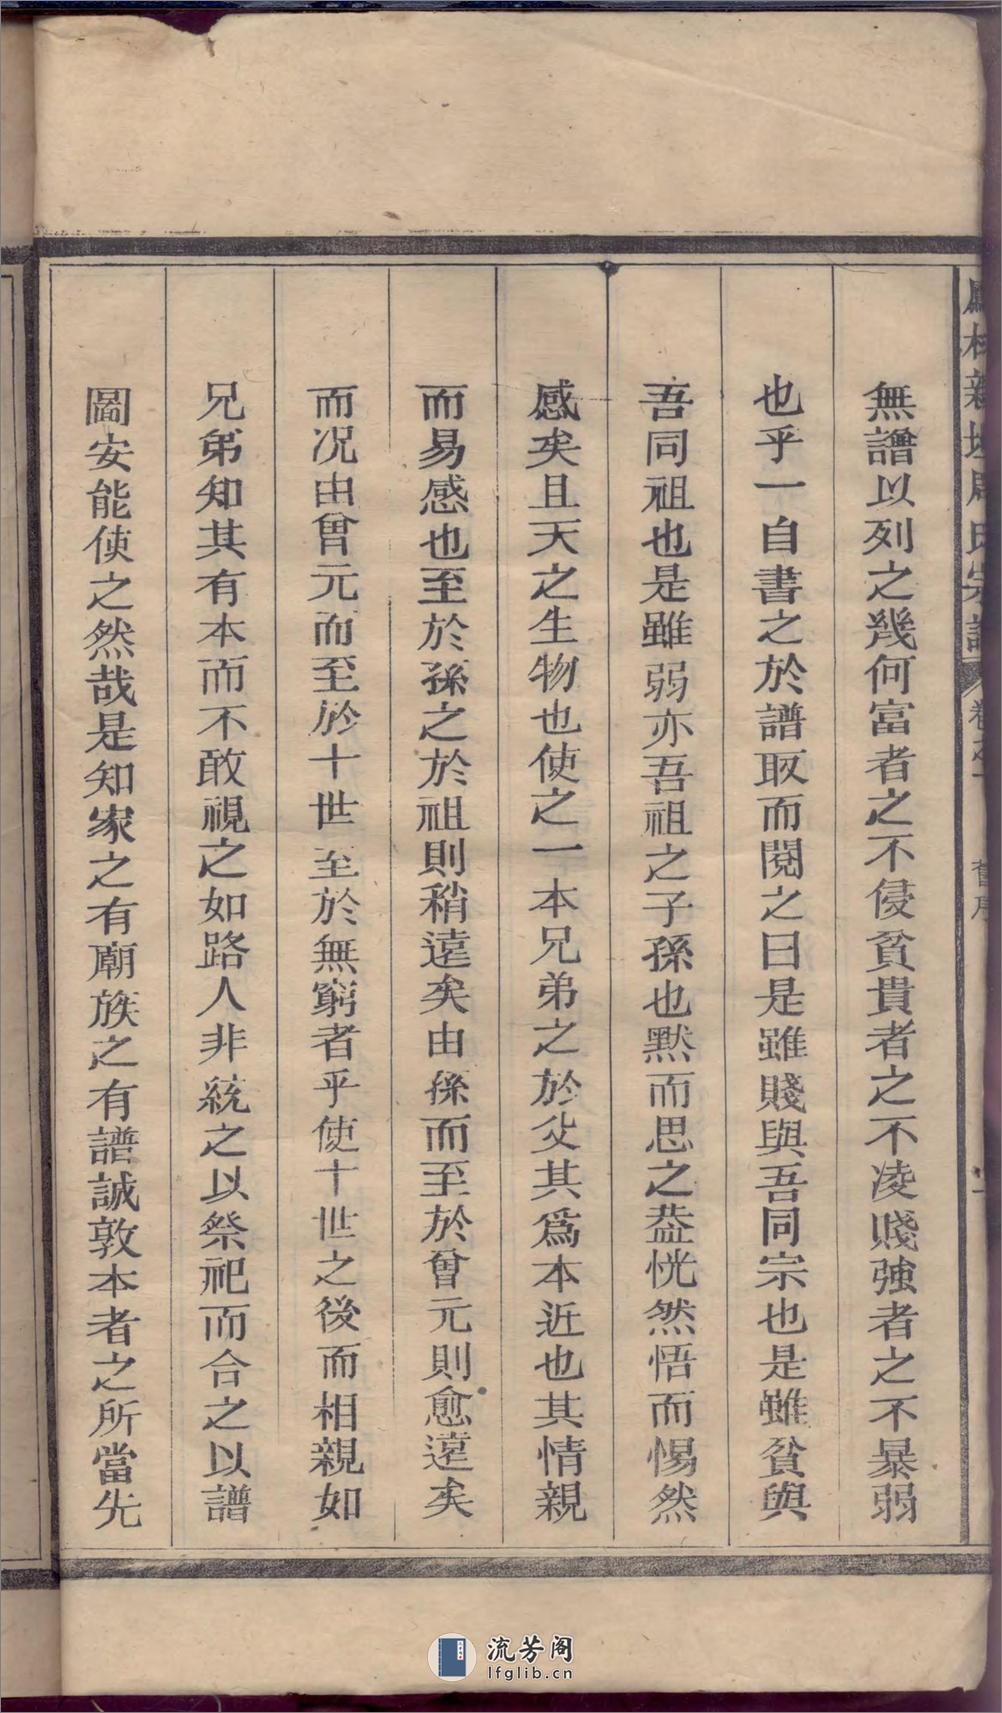 無譜以列之幾何富者之不侵貧貴者之不凌賤強者之不暴弱
也乎一自書之於譜取而閱之曰是雖賤與吾同宗也是雖貧與
吾同祖也是雖弱亦吾祖之子孫也默而思之葢恍然悟而惕然
感矣且天之生物也使之一本兄弟之於父其爲本近也其情親
而易感也至於孫之於祖則稍遠矣由孫而至於曾元則愈遠矣
而况由曾元而至於十世至於無窮者乎使十世之後而相親如
兄弟知其有本而不敢視之如路人非統之以祭祀而合之以譜
圖安能使之然哉是知家之有廟族之有譜誠敦本者之所當先
流芳阁
lfglib.cn